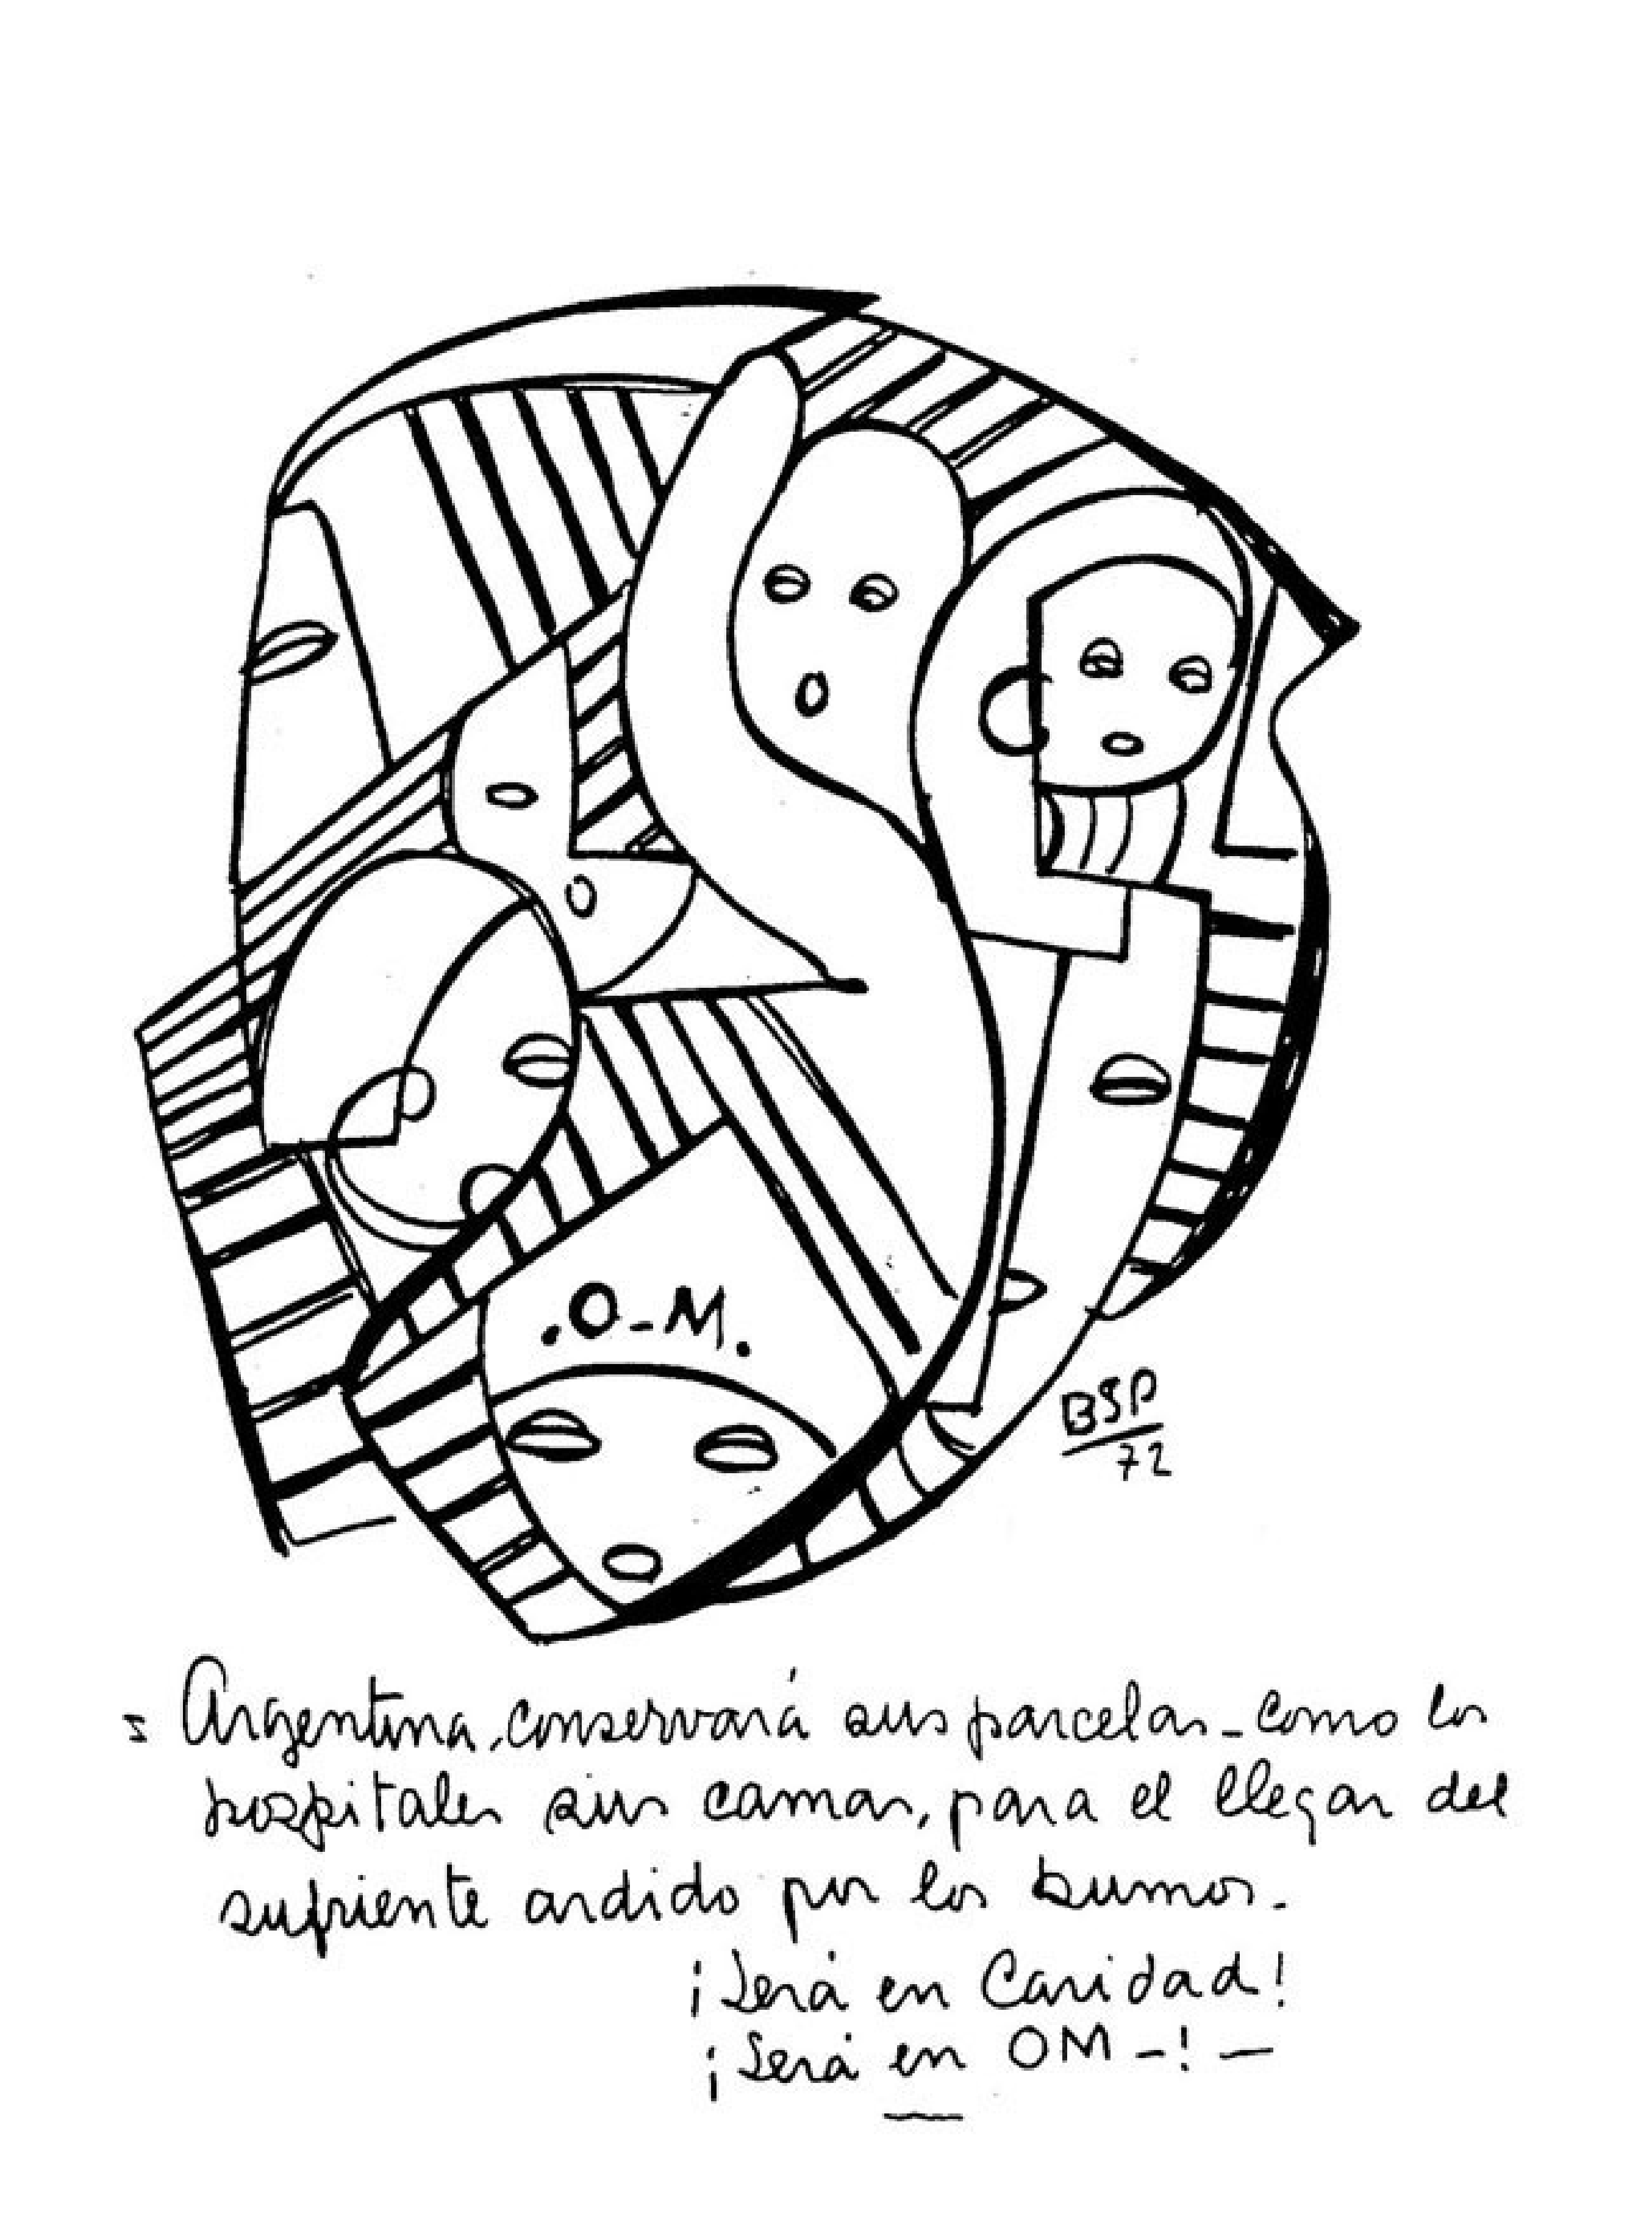 .O-M.
BSP
72
= Argentina, conservará sus parcelas - como los
hospitales sus camas, para el llegar del
sufriente ardido por los humos.
¡Será en Caridad!
¡Será en OM -! -